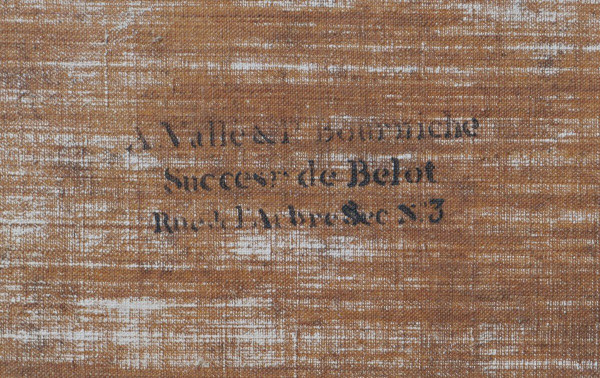 A. Vallé & P. Bourniche
Succesr. de Belot
Rue de l'Arbre Sec N 3